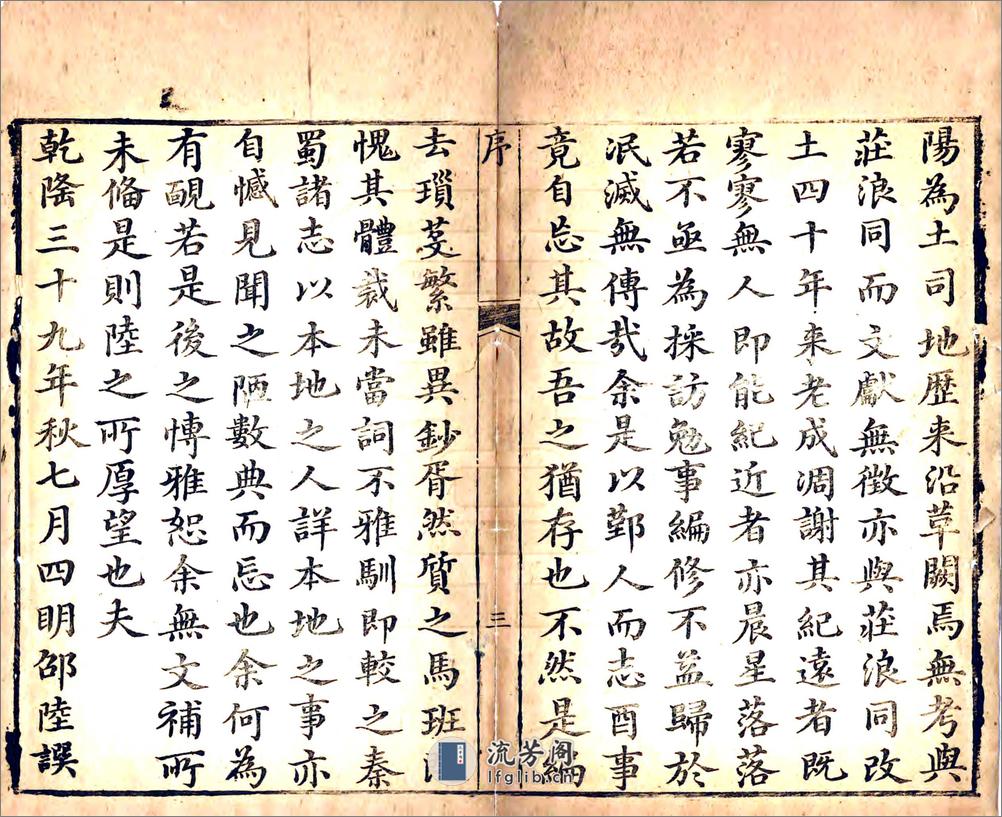 陽為土司地歷来沿草闕焉無考與
莊浪同而文獻無徴亦與莊浪同改
土四十年来老成凋謝其紀遠者既
寥寥無人即能紀近者亦晨星落落
若不亟為採訪勉事編修不益歸於
泯滅無傳㢤余是以鄞人而志酉事
竟自忘其故吾之猶存也不然是編
序
三
去瑣芟繁雖異鈔胥然質之馬班
愧其體裁未當詞不雅馴即較之秦
蜀諸志以本地之人詳本地之事亦
自憾見聞之陋數典而忘也余何為
有靦若是後之愽雅恕余無文補所
未俻是則陸之所厚望也夫
乾隆三十九年秋七月四明邵陸譔
流芳阁
lfglib.cn